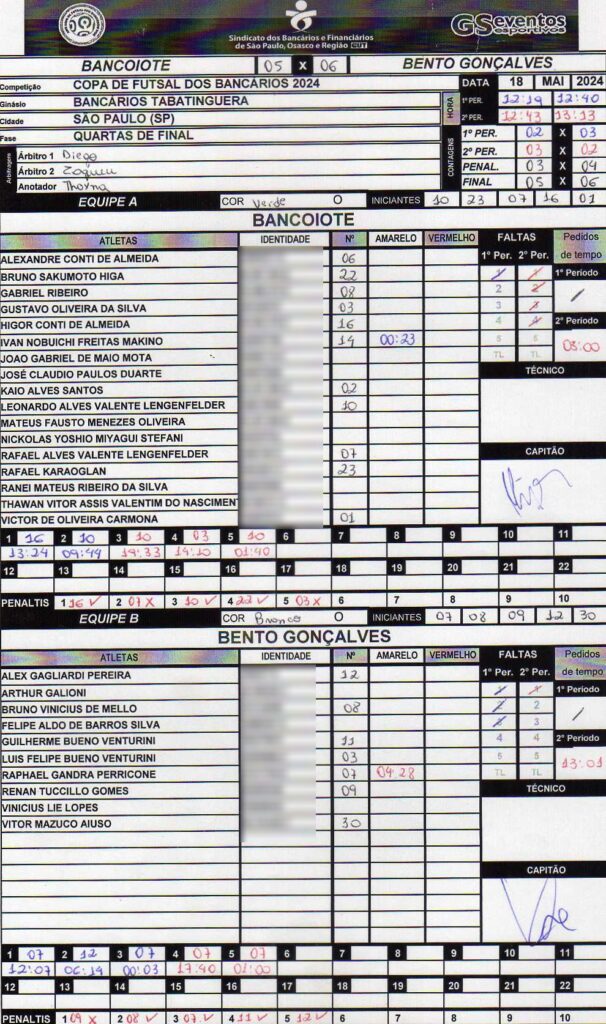 Sindicato dos Bancários e Financiários
de São Paulo, Osasco e Região CUT
GSeventos
esportivos
BANCOIOTE 05 X 06 BENTO GONÇALVES
Competição COPA DE FUTSAL DOS BANCÁRIOS 2024 DATA 18 MAI 2024
Ginásio BANCÁRIOS TABATINGUERA HORA 1º PER. 12:19 12:40
Cidade SÃO PAULO (SP) 2º PER. 12:43 13:13
Fase QUARTAS DE FINAL CONTAGENS 1º PER. 02 X 03
Arbitragem Árbitro 1 Diego 2º PER. 03 X 02
Árbitro 2 PENAL. 03 X 04
Anotador FINAL 05 X 06
EQUIPE A COR Verde O INICIANTES 10 23 07 16 01
BANCOIOTE
ATLETAS IDENTIDADE Nº AMARELO VERMELHO FALTAS Pedidos de tempo
1º Per. 2º Per.
ALEXANDRE CONTI DE ALMEIDA 06
BRUNO SAKUMOTO HIGA 22 1 1 1º Período
GABRIEL RIBEIRO 08 2 2 /
GUSTAVO OLIVEIRA DA SILVA 03 3 3
HIGOR CONTI DE ALMEIDA 16 4 4 2º Período
IVAN NOBUICHI FREITAS MAKINO 14 00:23 5 5 08:00
JOAO GABRIEL DE MAIO MOTA TL TL
JOSÉ CLAUDIO PAULOS DUARTE TÉCNICO
KAIO ALVES SANTOS 02
LEONARDO ALVES VALENTE LENGENFELDER 10
MATEUS FAUSTO MENEZES OLIVEIRA
NICKOLAS YOSHIO MIYAGUI STEFANI
RAFAEL ALVES VALENTE LENGENFELDER 07 CAPITÃO
RAFAEL KARAOGLAN 23
RANEI MATEUS RIBEIRO DA SILVA
THAWAN VITOR ASSIS VALENTIM DO NASCIMEN
VICTOR DE OLIVEIRA CARMONA 01
1 16 2 10 3 10 4 03 5 10 6 7 8 9 10 11
13:24 09:49 19:33 14:10 01:40
12 13 14 15 16 17 18 19 20 21 22
PENALTIS 1 16 ✓ 2 07 X 3 10 ✓ 4 22 ✓ 5 03 X 6 7 8 9 10
EQUIPE B COR Branco O INICIANTES 07 08 09 12 30
BENTO GONÇALVES
ATLETAS IDENTIDADE Nº AMARELO VERMELHO FALTAS Pedidos de tempo
1º Per. 2º Per.
ALEX GAGLIARDI PEREIRA 12
ARTHUR GALIONI 1 1 1º Período
BRUNO VINICIUS DE MELLO 08 2 2 /
FELIPE ALDO DE BARROS SILVA 3 3
GUILHERME BUENO VENTURINI 11 4 4 2º Período
LUIS FELIPE BUENO VENTURINI 03 5 5 13:01
RAPHAEL GANDRA PERRICONE 07 04:28 TL TL
RENAN TUCCILLO GOMES 09 TÉCNICO
VINICIUS LIE LOPES
VITOR MAZUCO AIUSO 30
CAPITÃO
1 07 2 12 3 07 4 07 5 07 6 7 8 9 10 11
12:07 06:19 00:03 17:40 01:00
12 13 14 15 16 17 18 19 20 21 22
PENALTIS 1 09 X 2 08 ✓ 3 07 ✓ 4 11 ✓ 5 12 ✓ 6 7 8 9 10